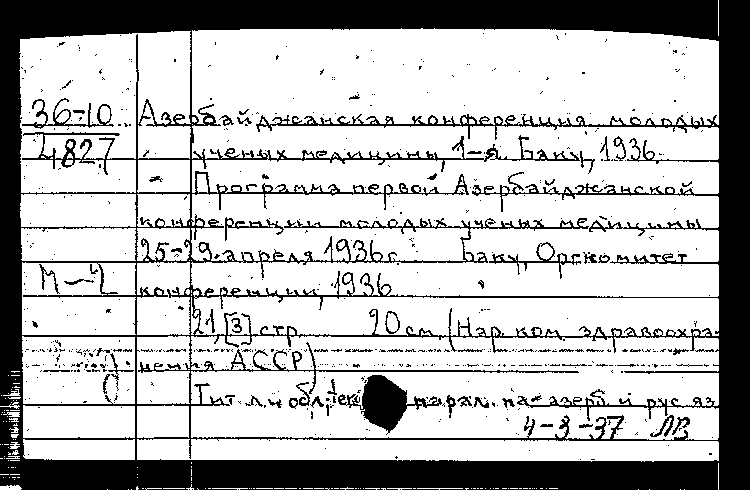 36-10 Азербайджанская конференция молодых
4827 ученых медицины, 1-я. Баку, 1936.
Программа первой Азербайджанской
конференции молодых ученых медицины
25-29 апреля 1936 г. Баку, Оргкомитет
М-2 конференции, 1936
21, [3] стр. 20 см. (Нар. ком. здравоохра-
нения АССР)
Тит. л. и обл., текст парал. на азерб. и рус. яз.
4-3-37 ЛВ